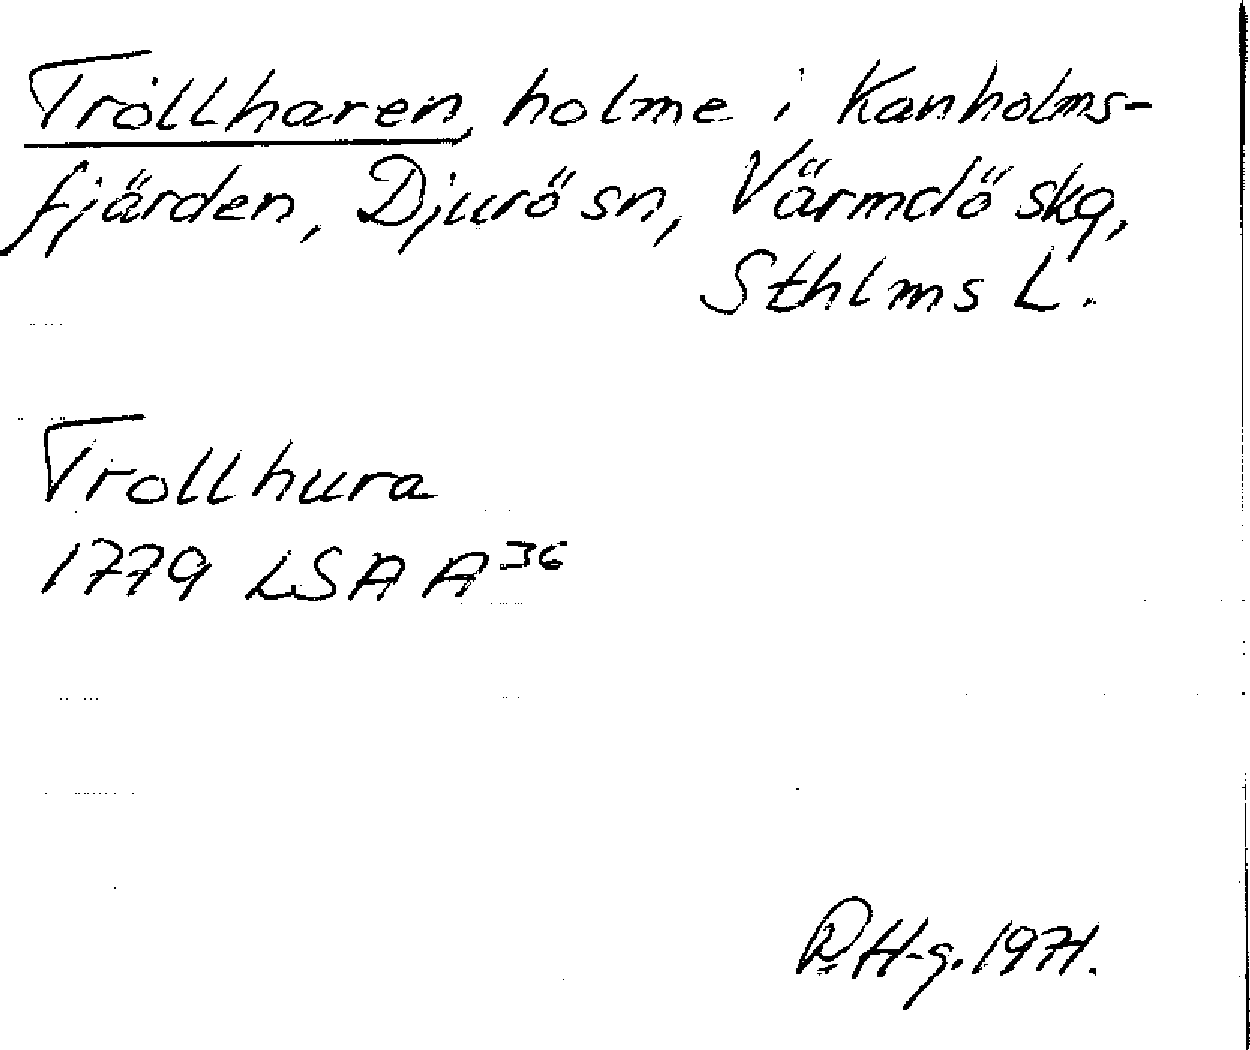 Trollharen, holme i Kanholms-
fjärden, Djurö sn, Värmdö skg,
Sthlms L.
Trollhura
1779 LSA A 36
H-g. 1971.